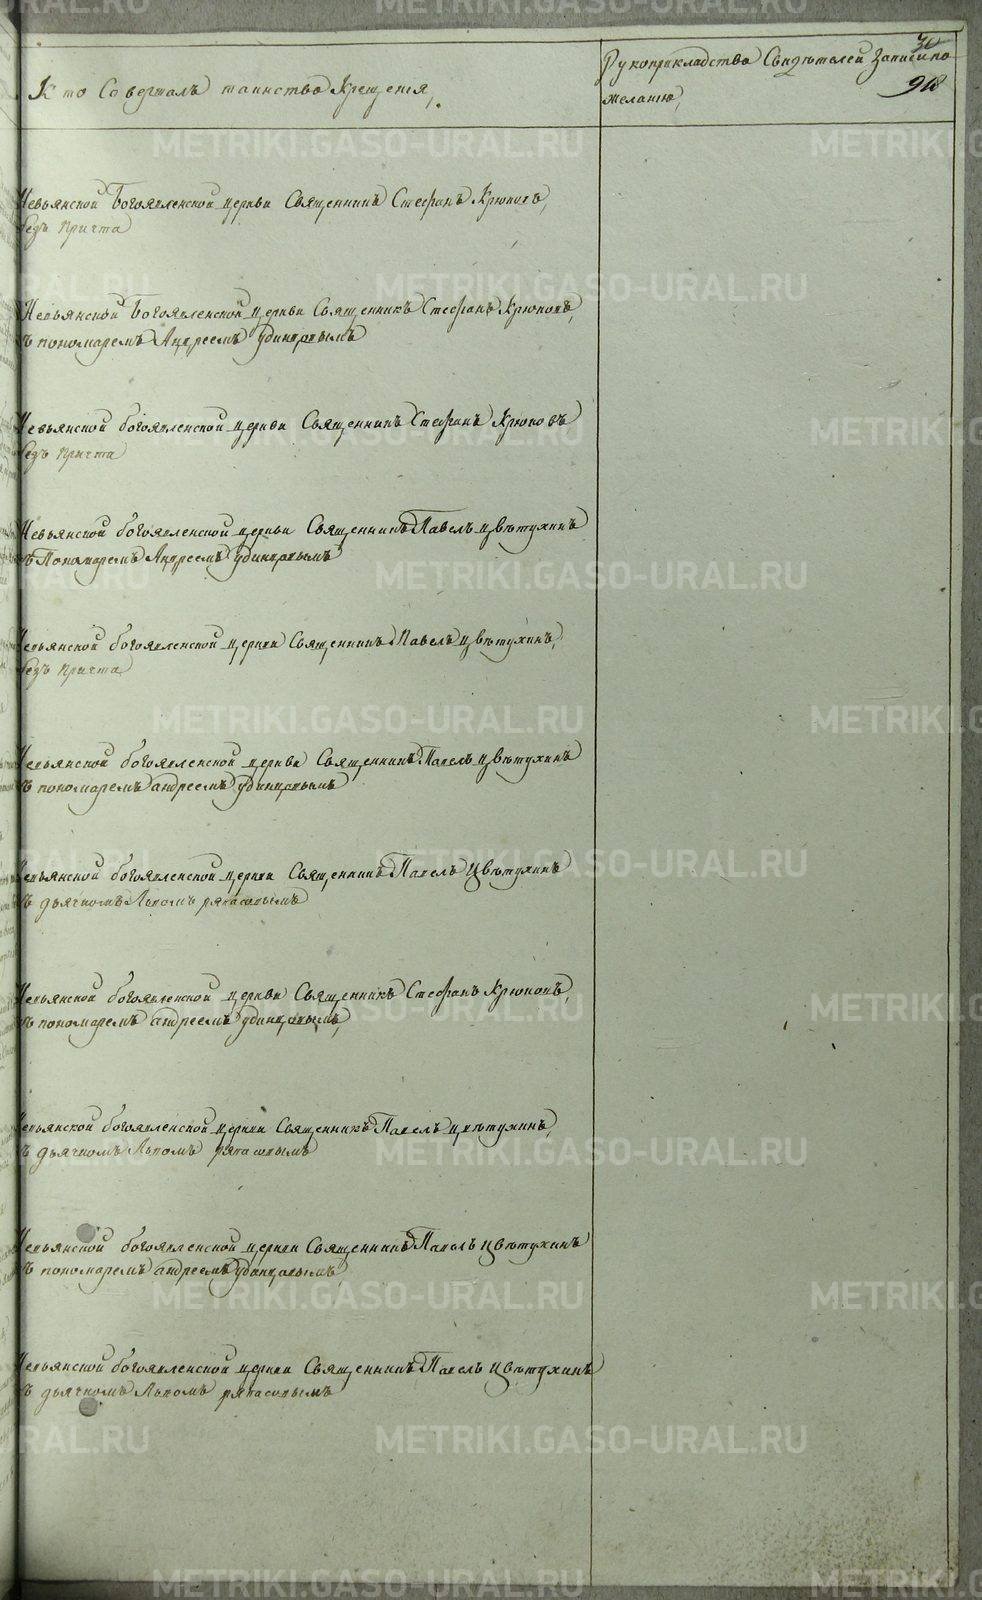 30
Кто Совершалъ таинство Крещенія,
Рукоприкладство Свидѣтелей Записи по
желанію,
98
Невьянской Богоявленской церкви Священникъ Стефанъ Крюковъ,
безъ Причта
Невьянской Богоявленской церкви Священникъ Стефанъ Крюковъ,
съ пономаремъ Андреемъ Удинцовымъ
Невьянской богоявленской церкви Священникъ Стефанъ Крюковъ
безъ Причта
Невьянской богоявленской церкви Священникъ Павелъ Цвѣтухинъ
съ Пономаремъ Андреемъ Удинцовымъ
Невьянской богоявленской церкви Священникъ Павелъ Цвѣтухинъ,
безъ Причта
Невьянской богоявленской церкви Священникъ Павелъ Цвѣтухинъ
съ пономаремъ андреемъ удинцовымъ
Невьянской богоявленской церкви Священникъ Павелъ Цвѣтухинъ
съ дьячкомъ Львомъ ряпасовымъ
Невьянской богоявленской церкви Священникъ Стефанъ Крюковъ,
съ пономаремъ андреемъ удинцовымъ,
Невьянской богоявленской церкви Священникъ Павелъ цвѣтухинъ,
съ дьячкомъ Львомъ ряпасовымъ
Невьянской богоявленской церкви Священникъ Павелъ Цвѣтухинъ
съ пономаремъ андреемъ удинцовымъ,
Невьянской богоявленской церкви Священникъ Павелъ Цвѣтухинъ
съ дьячкомъ Львомъ ряпасовымъ
METRIKI.GASO-URAL.RU